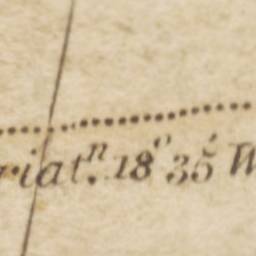 riatⁿ. 18° 35′ W